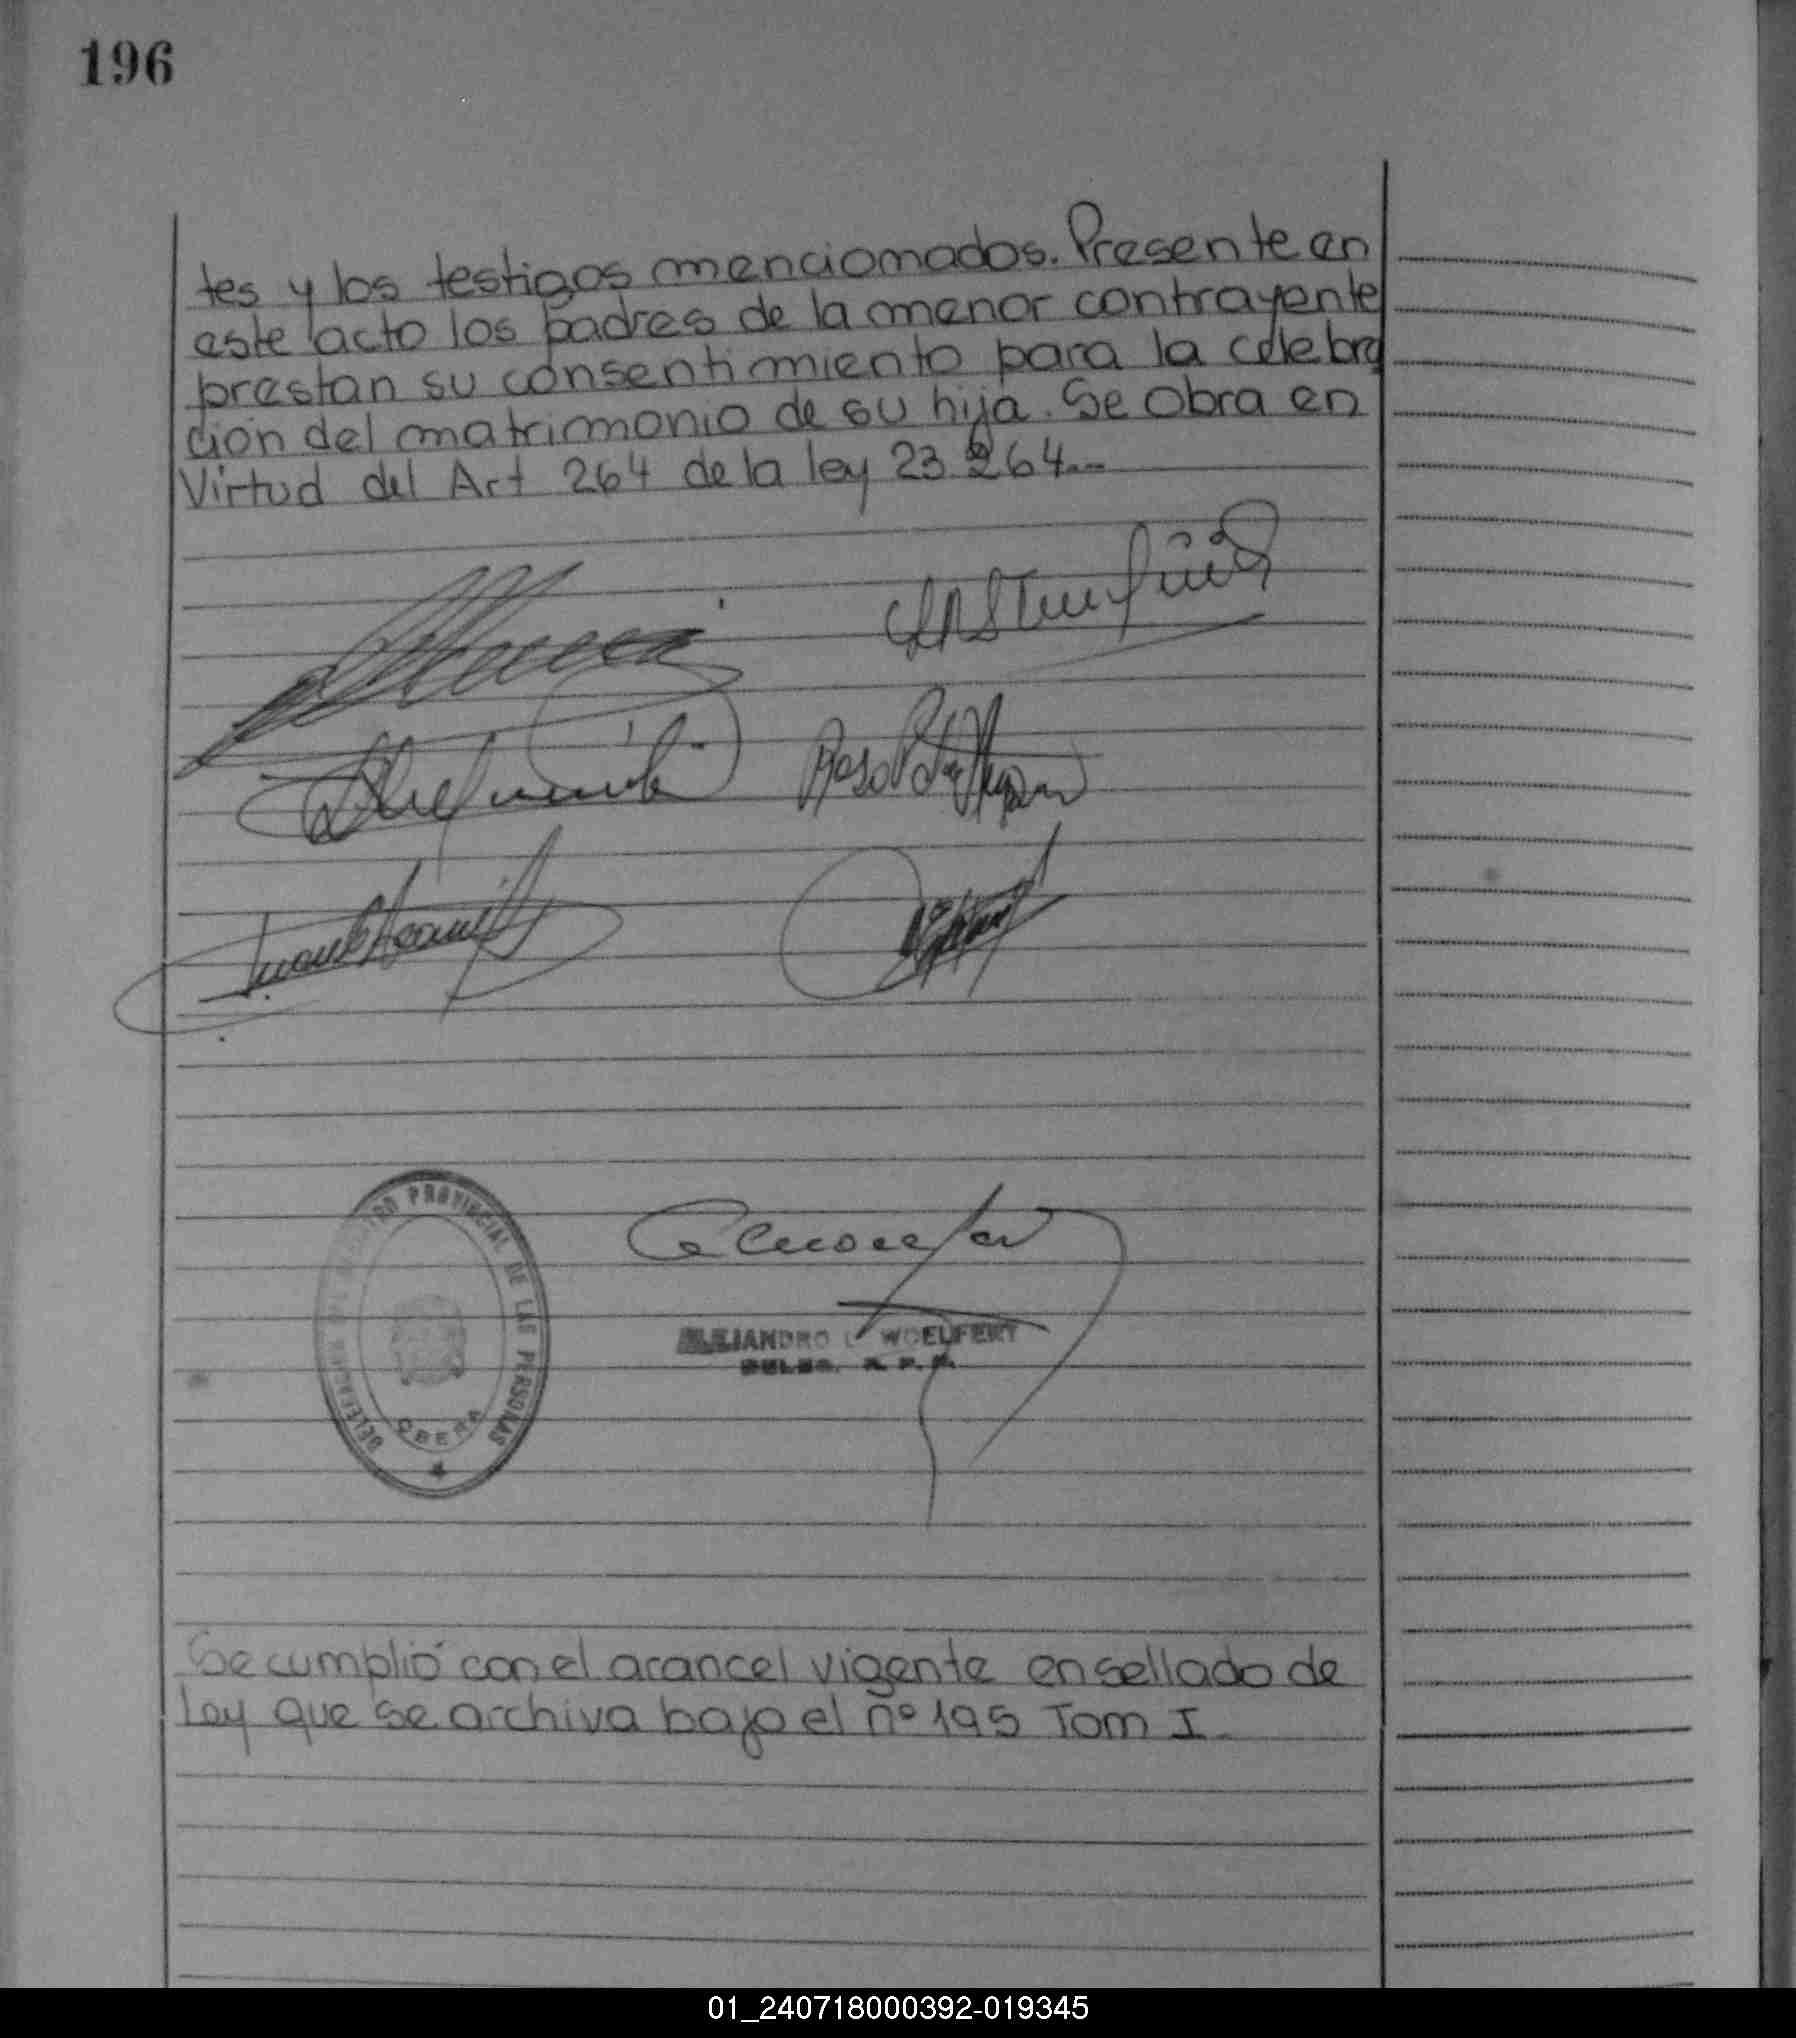 196
tes y los testigos mencionados. Presente en
este acto los padres de la menor contrayente
prestan su consentimiento para la celebra
ción del matrimonio de su hija. Se obra en
Virtud del Art 264 de la ley 23.264.--
PROVINCIAL DE LAS PERSONAS
OBERA
ALEJANDRO WOELFERT
DELEG. R. P. P.
Se cumplió con el arancel vigente en sellado de
Ley que se archiva bajo el nº 195 Tom I.
01_240718000392-019345